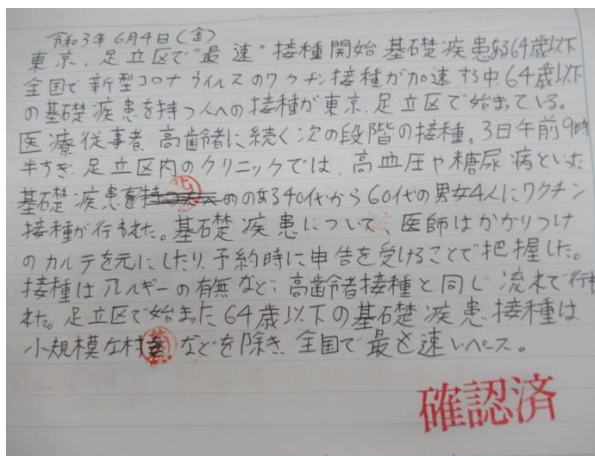 令和3年6月4日(金)
東京、足立区で"最速"接種開始 基礎疾患ある64歳以下
全国で新型コロナウイルスのワクチン接種が加速する中、64歳以下
の基礎疾患を持つ人への接種が東京、足立区で始まっている。
医療従事者、高齢者に続く次の段階の接種。3日午前9時
半すぎ、足立区内のクリニックでは、高血圧や糖尿病といった
基礎疾患を のある40代から60代の男女4人にワクチン
接種が行われた。基礎疾患について、医師はかかりつけ
のカルテを元にしたり、予約時に申告を受けることで把握した。
接種はアレルギーの有無など、高齢者接種と同じ流れで行わ
れた。足立区で始まった64歳以下の基礎疾患接種は、
小規模な村 などを除き、全国で最も速いペース。
確認済